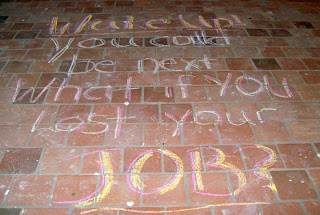 Wake up!
You could
be next
What if you
Lost your
JOB?